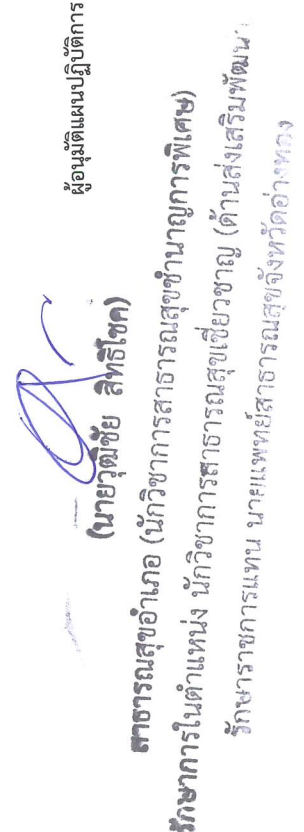 ผู้อนุมัติแผนปฏิบัติการ
(นายวุฒิชัย สิทธิโชค)
สาธารณสุขอำเภอ (นักวิชาการสาธารณสุขชำนาญการพิเศษ)
รักษาการในตำแหน่ง นักวิชาการสาธารณสุขเชี่ยวชาญ (ด้านส่งเสริมพัฒนา
รักษาราชการแทน นายแพทย์สาธารณสุขจังหวัดอ่างทอง